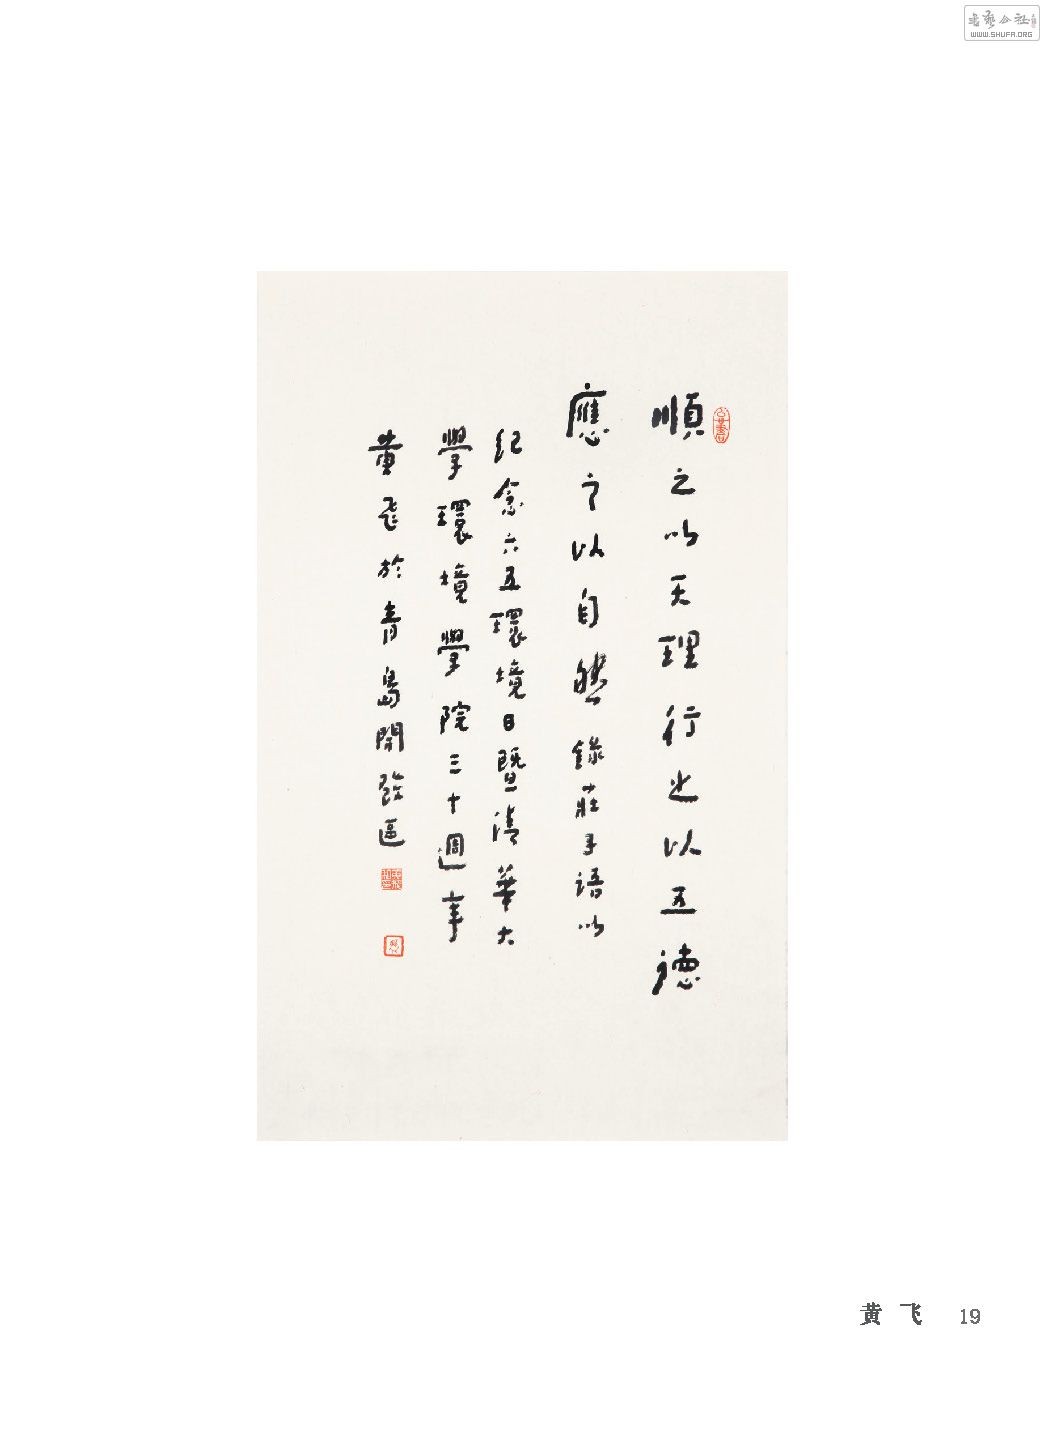 順之以天理行之以五德
應之以自然錄莊子語以
紀念六五環境日暨清華大
學環境學院三十週事
黄飛於青島開
黄 飞 19
WWW.SHUFA.ORG